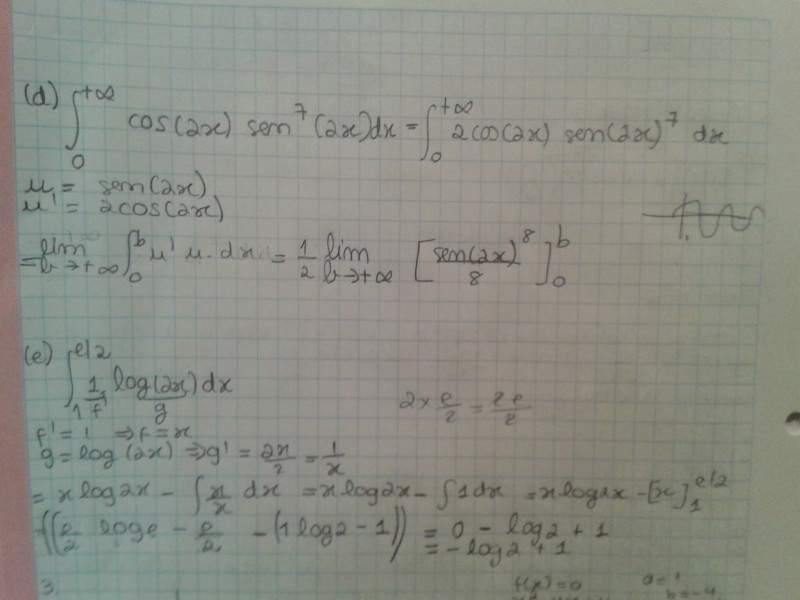 (d) ∫₀^{+∞} cos(2x) sen⁷(2x)dx = ∫₀^{+∞} 2cos(2x) sen(2x)⁷ dx
u = sen(2x)
u' = 2cos(2x)
= lim_{b→+∞} ∫₀^b u' u. dx = 1/2 lim_{b→+∞} [sen(2x)⁸/8]₀^b
(e) ∫₁^{e/2} 1 log(2x) dx
f' g
2x e/2 = 2e/2
f' = 1 ⇒ f = x
g = log(2x) ⇒ g' = 2x/2 = 1/x
= x log2x - ∫ x/x dx = x log2x - ∫ 1dx = x log2x - [x]₁^{e/2}
((e/2 loge - e/2 - (1 log2 - 1)) = 0 - log2 + 1
= - log2 + 1
3. f(x)=0